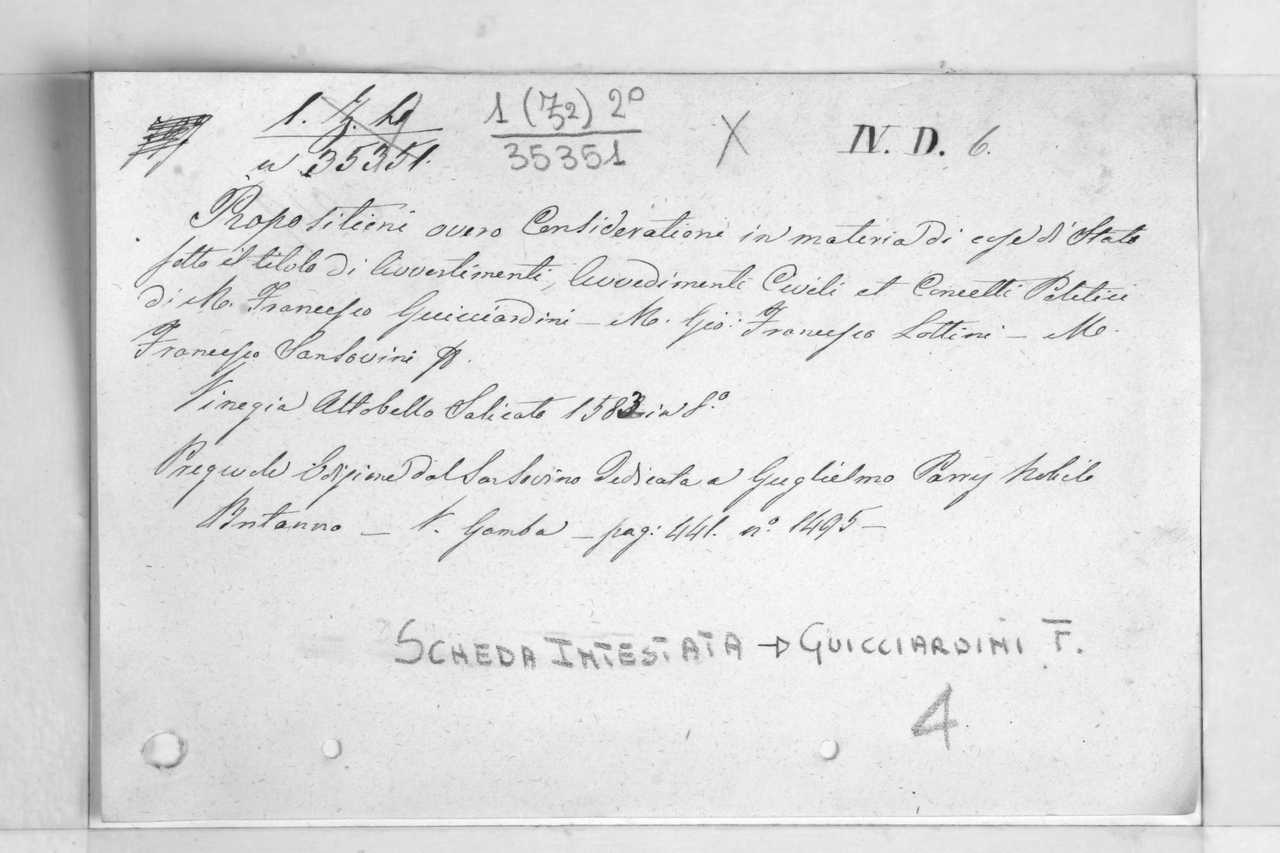 1 (Z2) 2º
35351
X IV. D. 6.
n 35351.
Propositioni overo Considerationi in materia di cose di Stato
sotto il titolo di Avvertimenti, Avvedimenti Civili et Concetti Politici
di M. Francesco Guicciardini — M. Gio: Francesco Lottini — M.
Francesco Sansovini
Vinegia Altobello Salicato 1583 in 8.º
Edizione dal Sansovino Dedicata a Guglielmo Parry Nobile
Britanno — V. Gamba — pag: 441. nº. 1495 —
SCHEDA INTESTATA → GUICCIARDINI F.
4